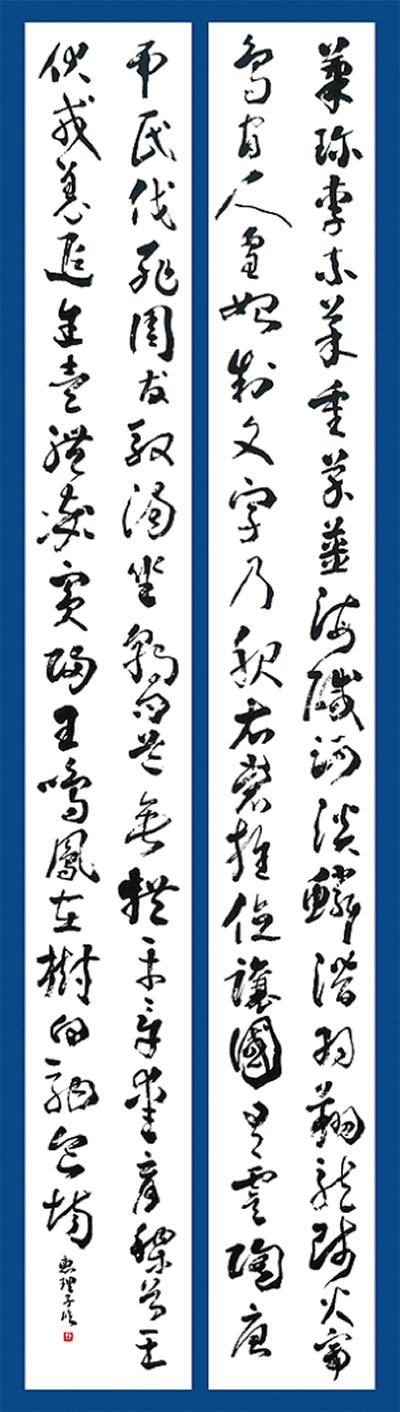 菓珍李柰菜重芥薑海鹹河淡鱗潛羽翔龍師火帝
鳥官人皇始制文字乃服衣裳推位讓國有虞陶唐
弔民伐罪周發殷湯坐朝問道垂拱平章愛育黎首臣
伏戎羌遐邇壹體率賓歸王鳴鳳在樹白駒食場
恵理子臨